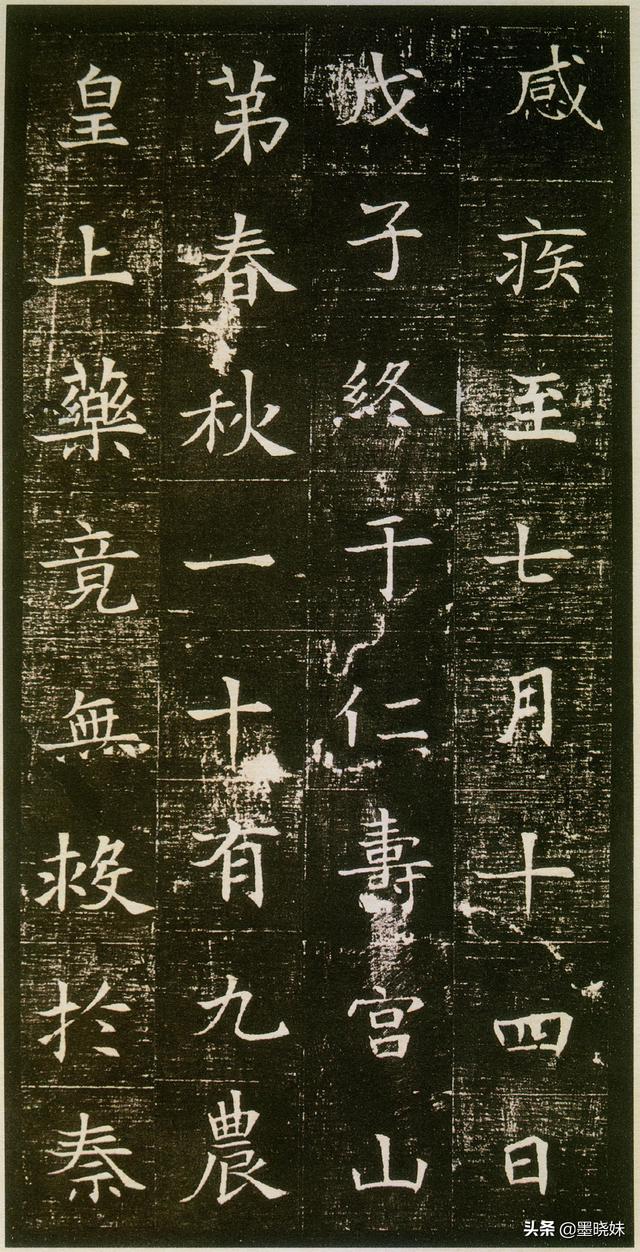 感疾至七月十四日
戊子終于仁壽宮山
苐春秋一十有九農
皇上藥竟無救於秦
头条 @墨晓妹